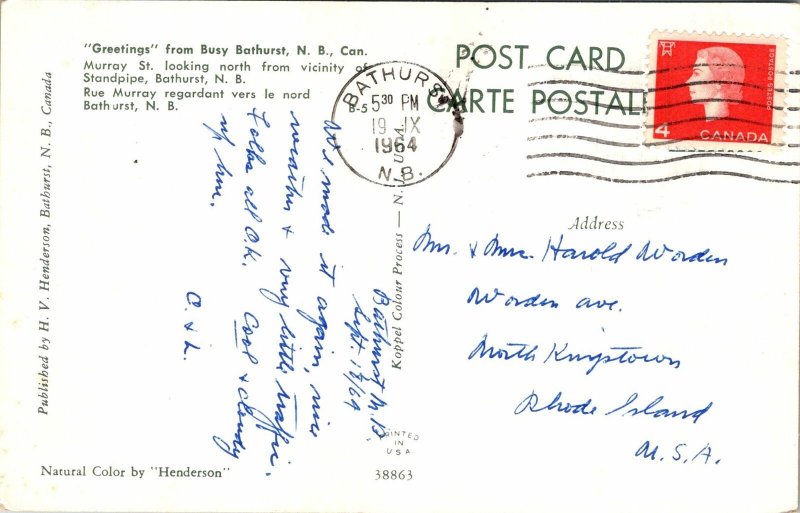 "Greetings" from Busy Bathurst, N. B., Can.
Murray St. looking north from vicinity of
Standpipe, Bathurst, N. B.
Rue Murray regardant vers le nord
Bathurst, N. B.
B-5
POST CARD
CARTE POSTALE
BATHURST
5 30 PM
19 IX
1964
N.B.
4
CANADA
POSTES POSTAGE
Published by H. V. Henderson, Bathurst, N. B., Canada
Koppel Colour Process — N. J., U.S.A.
Bathurst N.B.
Sept. 18/64
We made it again, nice
weather & very little traffic.
Folks all O.K. Cool & cloudy
up here.
O. & L.
Address
Mr. & Mrs. Harold Worden
Worden Ave.
North Kingstown
Rhode Island
U.S.A.
PRINTED
IN
U S A
Natural Color by "Henderson"
38863